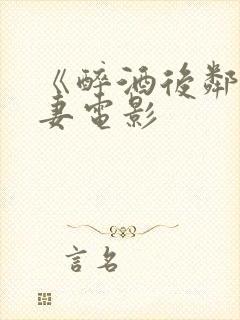 《醉酒後鄰
妻電影
言名